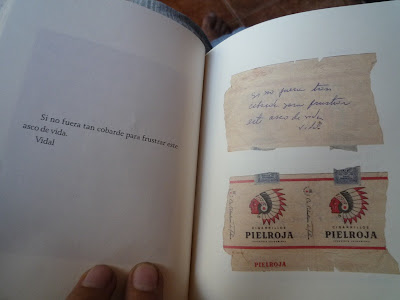 Si no fuera tan cobarde para frustrar este
asco de vida.
Vidal
Si no fuera tan
cobarde para frustrar
este asco de vida
Vidal
CIGARRILLOS
PIELROJA
CIGARRILLOS
PIELROJA
PIELROJA